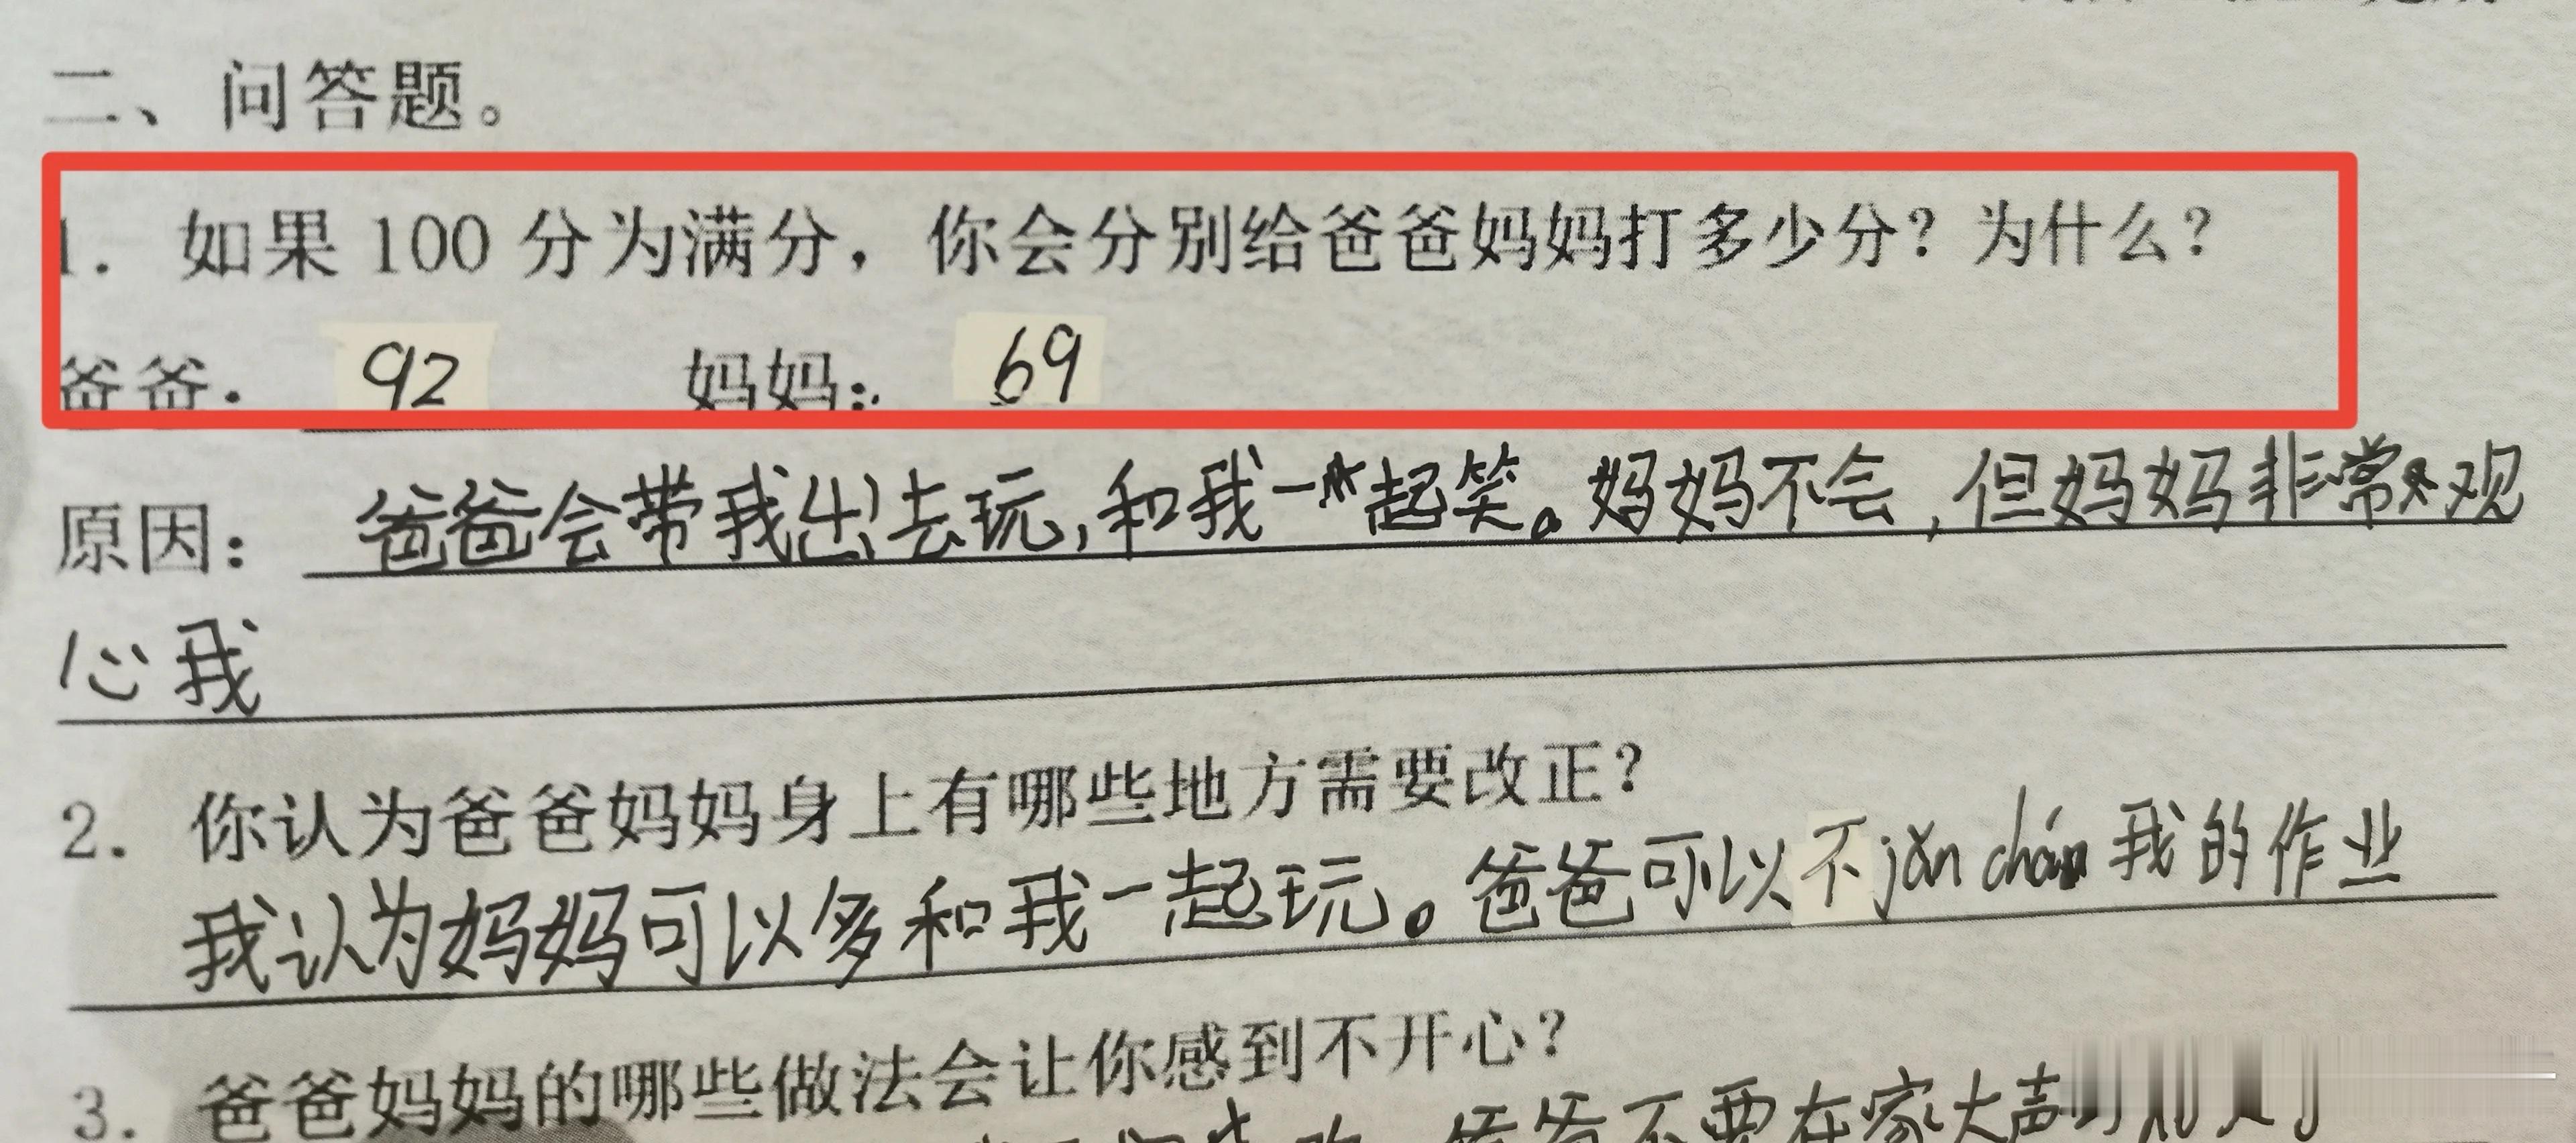 二、问答题。
1. 如果 100 分为满分，你会分别给爸爸妈妈打多少分？为什么？
爸爸： 92 妈妈： 69
原因： 爸爸会带我出去玩，和我一起笑。妈妈不会，但妈妈非常观
心我
2. 你认为爸爸妈妈身上有哪些地方需要改正？
我认为妈妈可以多和我一起玩。爸爸可以不jǎn chá我的作业
3. 爸爸妈妈的哪些做法会让你感到不开心？
爸爸不要在家大声